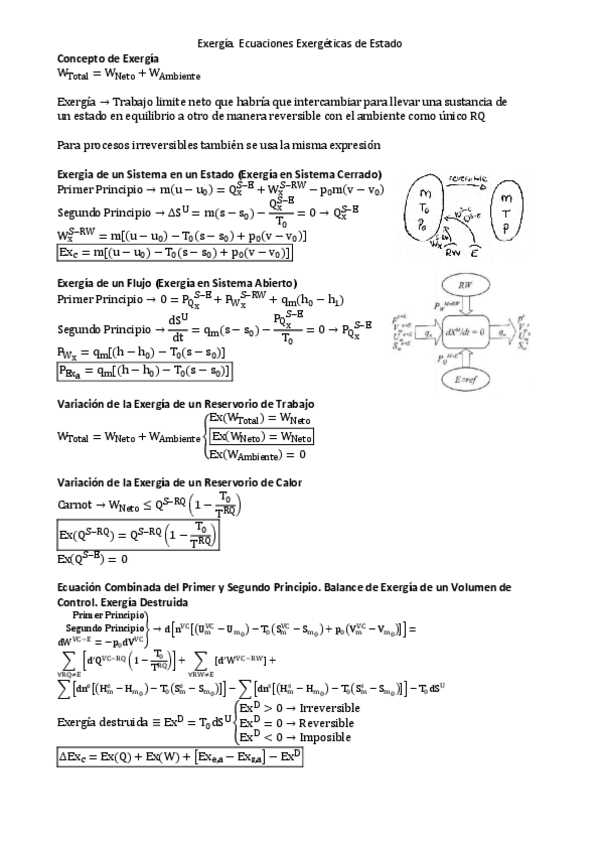 Exergía. Ecuaciones Exergéticas de Estado
Concepto de Exergía
W_Total = W_Neto + W_Ambiente
Exergía → Trabajo limite neto que habría que intercambiar para llevar una sustancia de
un estado en equilibrio a otro de manera reversible con el ambiente como único RQ
Para procesos irreversibles también se usa la misma expresión
Exergia de un Sistema en un Estado (Exergía en Sistema Cerrado)
Primer Principio → m(u − u₀) = Q_x^{S−E} + W_x^{S−RW} − p₀m(v − v₀)
Segundo Principio → ΔS^U = m(s − s₀) − Q_x^{S−E}/T₀ = 0 → Q_x^{S−E}
W_x^{S−RW} = m[(u − u₀) − T₀(s − s₀) + p₀(v − v₀)]
Ex_c = m[(u − u₀) − T₀(s − s₀) + p₀(v − v₀)]
reversible
m
T₀
p₀
m
T
p
RW E
Exergía de un Flujo (Exergía en Sistema Abierto)
Primer Principio → 0 = P_{Q_x}^{S−E} + P_{W_x}^{S−RW} + q_m(h₀ − h₁)
Segundo Principio → dS^U/dt = q_m(s − s₀) − P_{Q_x}^{S−E}/T₀ = 0 → P_{Q_x}^{S−E}
P_{W_x} = q_m[(h − h₀) − T₀(s − s₀)]
P_{Ex_a} = q_m[(h − h₀) − T₀(s − s₀)]
RW
dX^M/dt = 0
E≡ref
Variación de la Exergía de un Reservorio de Trabajo
W_Total = W_Neto + W_Ambiente { Ex(W_Total) = W_Neto
Ex(W_Neto) = W_Neto
Ex(W_Ambiente) = 0
Variación de la Exergía de un Reservorio de Calor
Carnot → W_Neto ≤ Q^{S−RQ} (1 − T₀/T^{RQ})
Ex(Q^{S−RQ}) = Q^{S−RQ} (1 − T₀/T^{RQ})
Ex(Q^{S−E}) = 0
Ecuación Combinada del Primer y Segundo Principio. Balance de Exergía de un Volumen de
Control. Exergía Destruida
Primer Principio
Segundo Principio
dW^{VC−E} = −p₀dV^{VC} } → d[n^{VC}[(U_m^{VC} − U_{m₀}) − T₀(S_m^{VC} − S_{m₀}) + p₀(V_m^{VC} − V_{m₀})]] =
∑_{∀RQ≠E} [d'Q^{VC−RQ} (1 − T₀/T^{RQ})] + ∑_{∀RW≠E} [d'W^{VC−RW}] +
∑[dn^e[(H_m^e − H_{m₀}) − T₀(S_m^e − S_{m₀})]] − ∑[dn^s[(H_m^s − H_{m₀}) − T₀(S_m^s − S_{m₀})]] − T₀dS^U
Exergía destruida ≡ Ex^D = T₀dS^U { Ex^D > 0 → Irreversible
Ex^D = 0 → Reversible
Ex^D < 0 → Imposible
ΔEx_c = Ex(Q) + Ex(W) + [Ex_{e,a} − Ex_{s,a}] − Ex^D